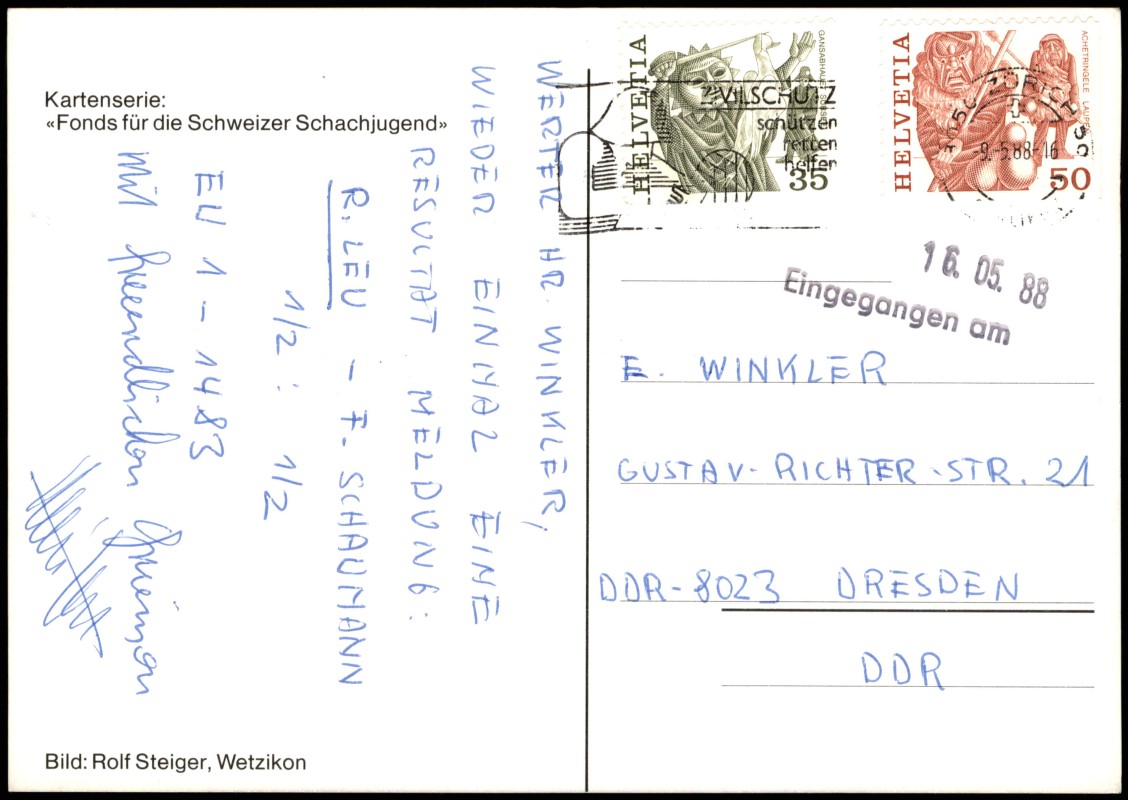 Kartenserie:
«Fonds für die Schweizer Schachjugend»
WERTER HR. WINKLER,
WIEDER EINMAL EINE
RESULTAT MELDUNG:
R. LEU - F. SCHAUMANN
1/2 : 1/2
EU 1 - 1483
Mit freundlichen Grüssen
Bild: Rolf Steiger, Wetzikon
HELVETIA
35
ZIVILSCHUTZ
schützen
retten
helfen
HELVETIA
ACHETRINGELE LAUPEN
50
ZÜRICH
-9.-5.88-16
16. 05. 88
Eingegangen am
E. WINKLER
GUSTAV-RICHTER-STR. 21
DDR-8023 DRESDEN
DDR